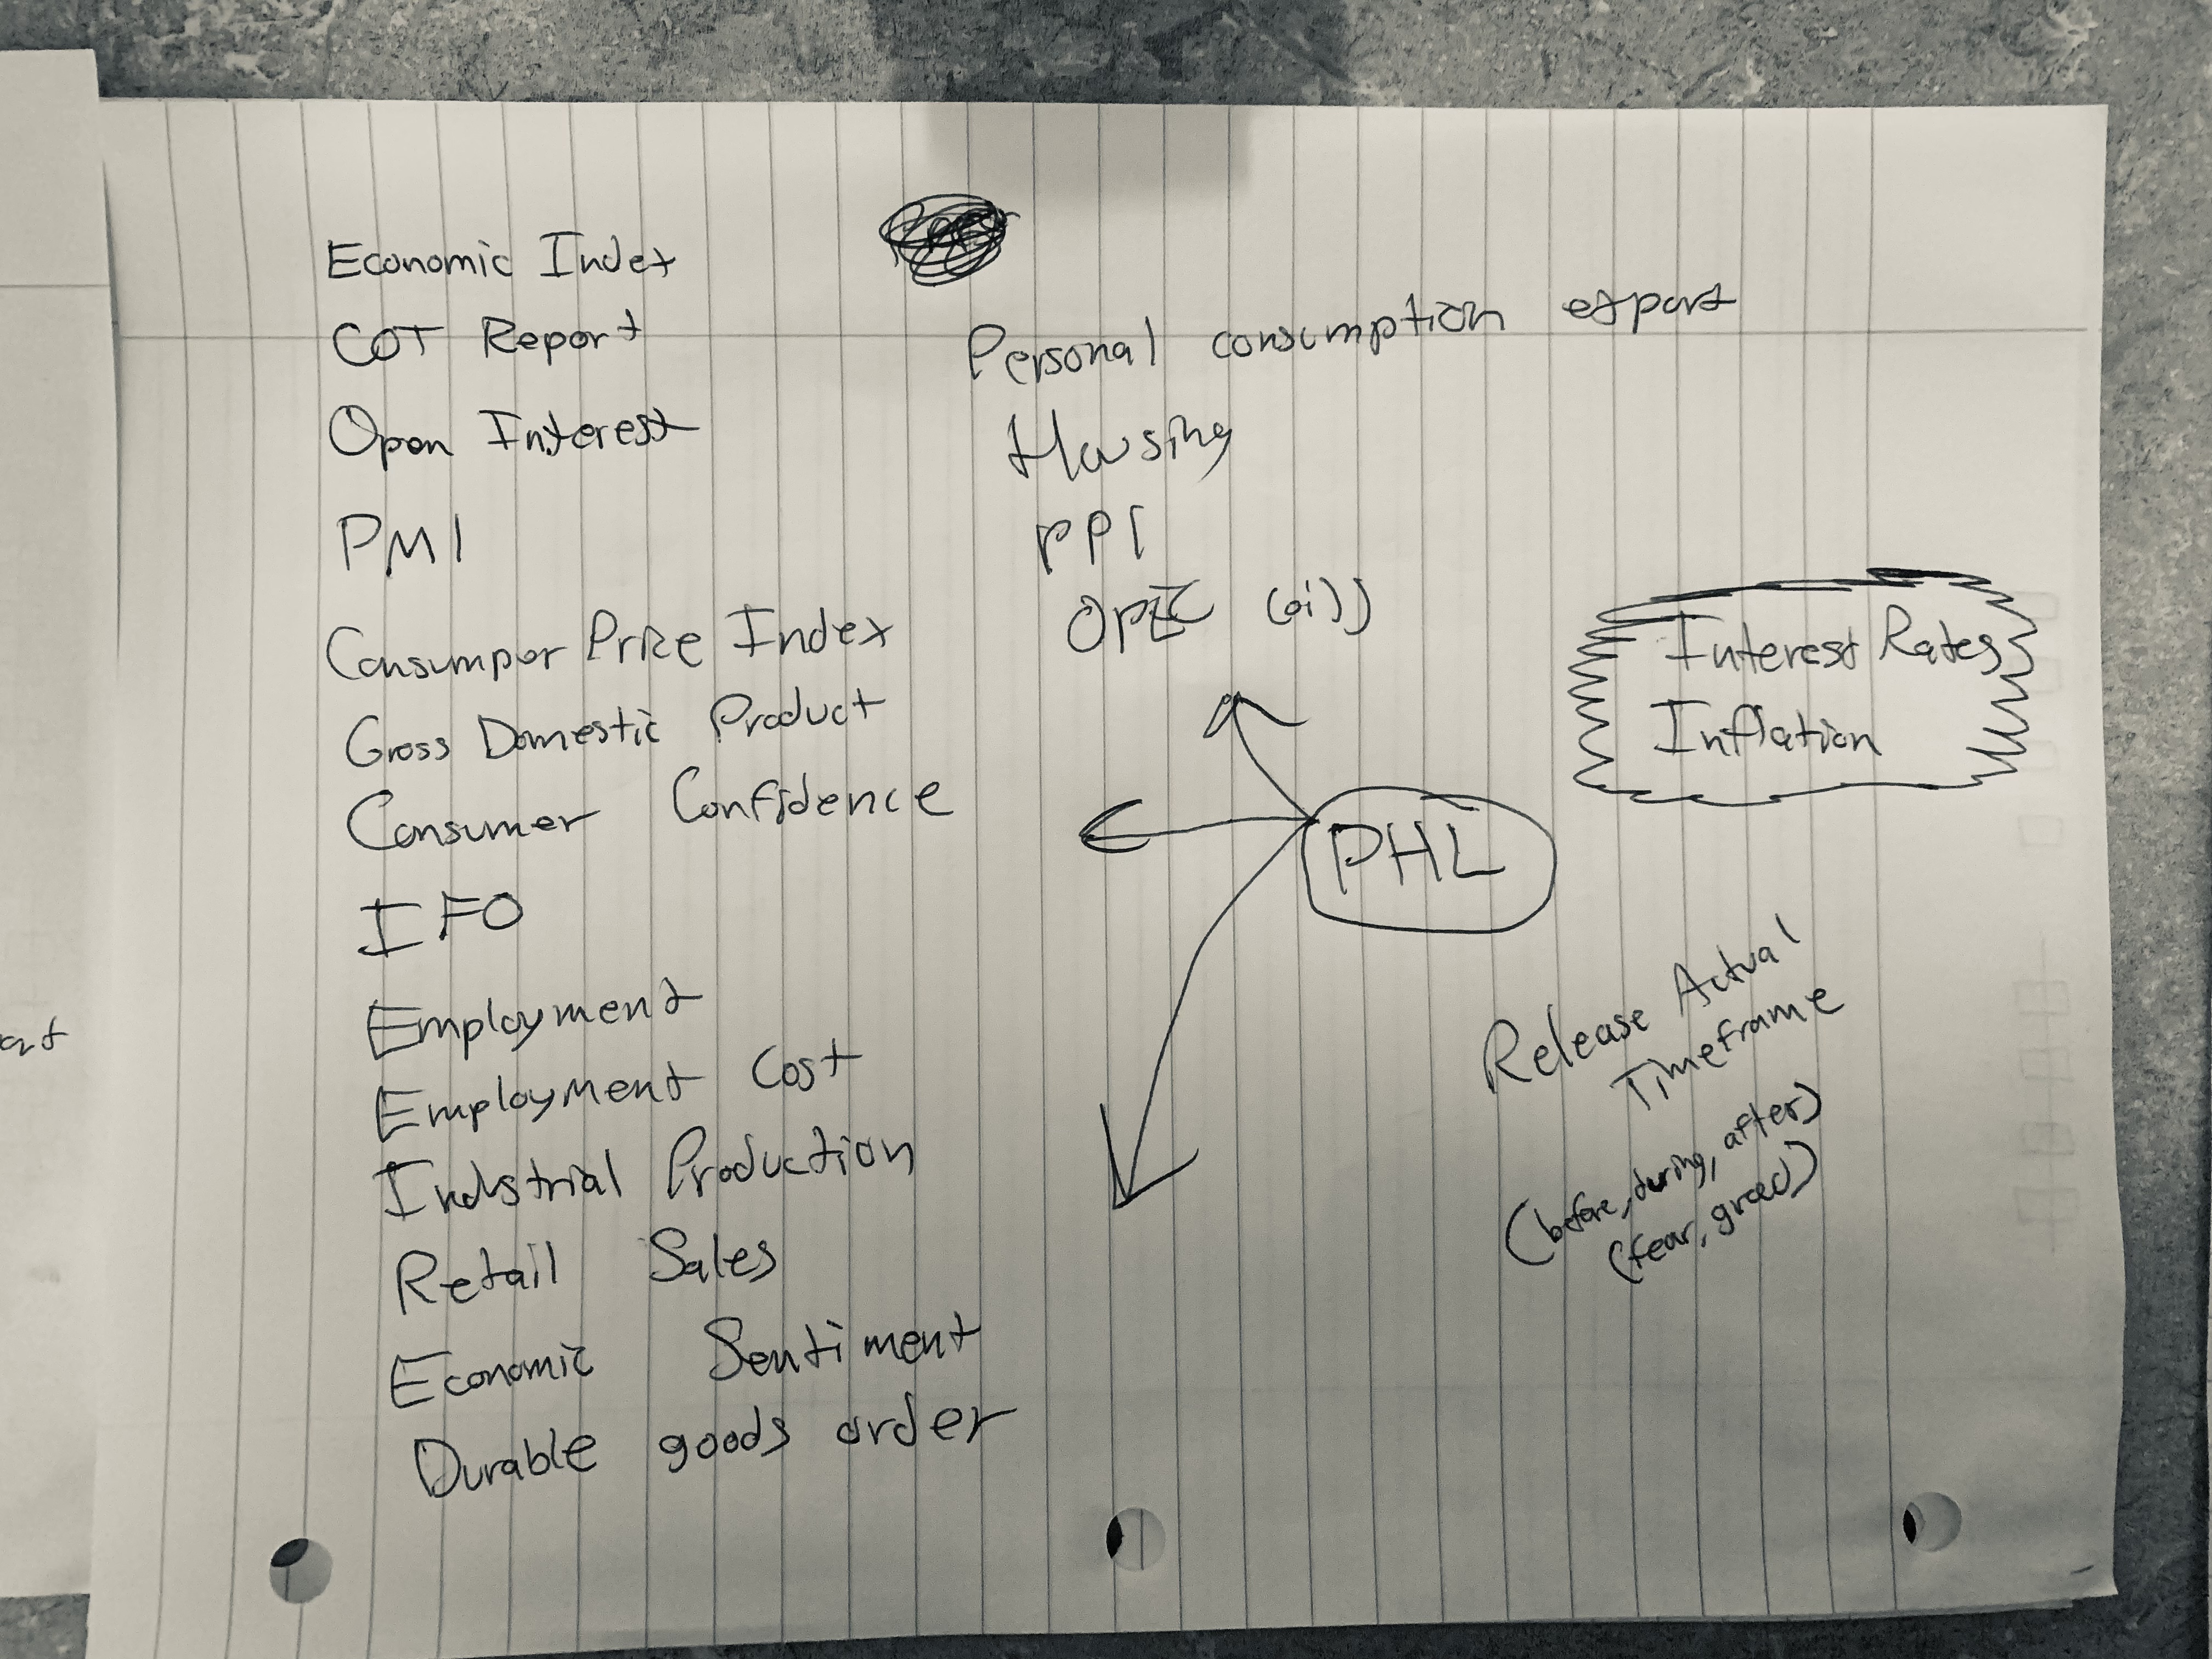 Economic Index
COT Report
Open Interest
PMI
Consumper Price Index
Gross Domestic Product
Consumer Confidence
IFO
Employment
Employment Cost
Industrial Production
Retail Sales
Economic Sentiment
Durable goods order
Personal consumption export
Housing
PPI
OPEC (oil)
PHL
Interest Rates
Inflation
Release Actual
Timeframe
(before, during, after)
(fear, greed)